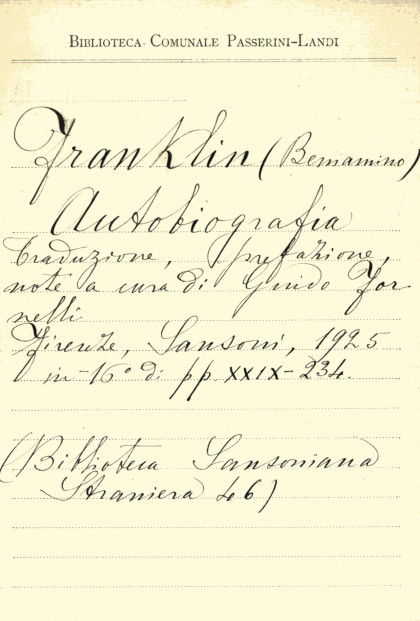 Biblioteca Comunale Passerini-Landi
Franklin (Bemamino)
Autobiografia
traduzione, prefazione,
note a cura di Guido For
nelli
Firenze, Sansoni, 1925
in-16° di pp. XXIX-234.
(Biblioteca Sansoniana
Straniera 46)